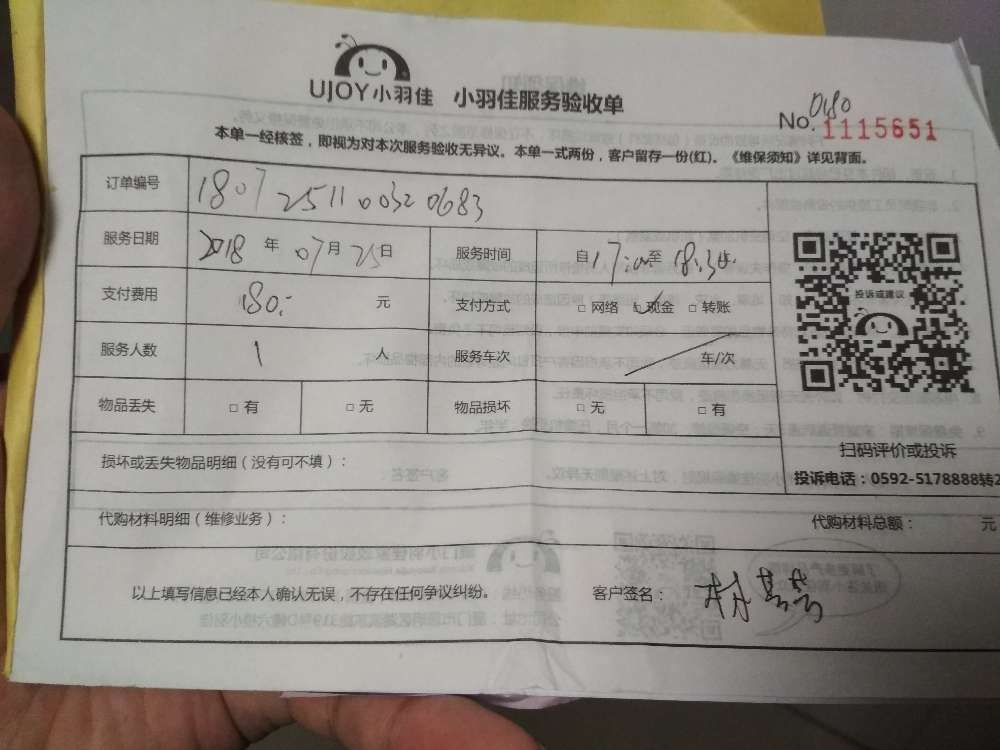 UJOY小羽佳 小羽佳服务验收单
0480
No. 1115651
本单一经核签，即视为对本次服务验收无异议。本单一式两份，客户留存一份(红)。《维保须知》详见背面。
订单编号 180725110320683
服务日期 2018 年 07 月 25 日 服务时间 自 17:00 至 18:30
支付费用 180. 元 支付方式 □ 网络 ☑ 现金 □ 转账
服务人数 1 人 服务车次 车/次
物品丢失 □ 有 □ 无 物品损坏 □ 无 □ 有
投诉或建议
扫码评价或投诉
损坏或丢失物品明细（没有可不填）：
投诉电话：0592-5178888转2
代购材料明细（维修业务）： 代购材料总额： 元
以上填写信息已经本人确认无误，不存在任何争议纠纷。 客户签名：